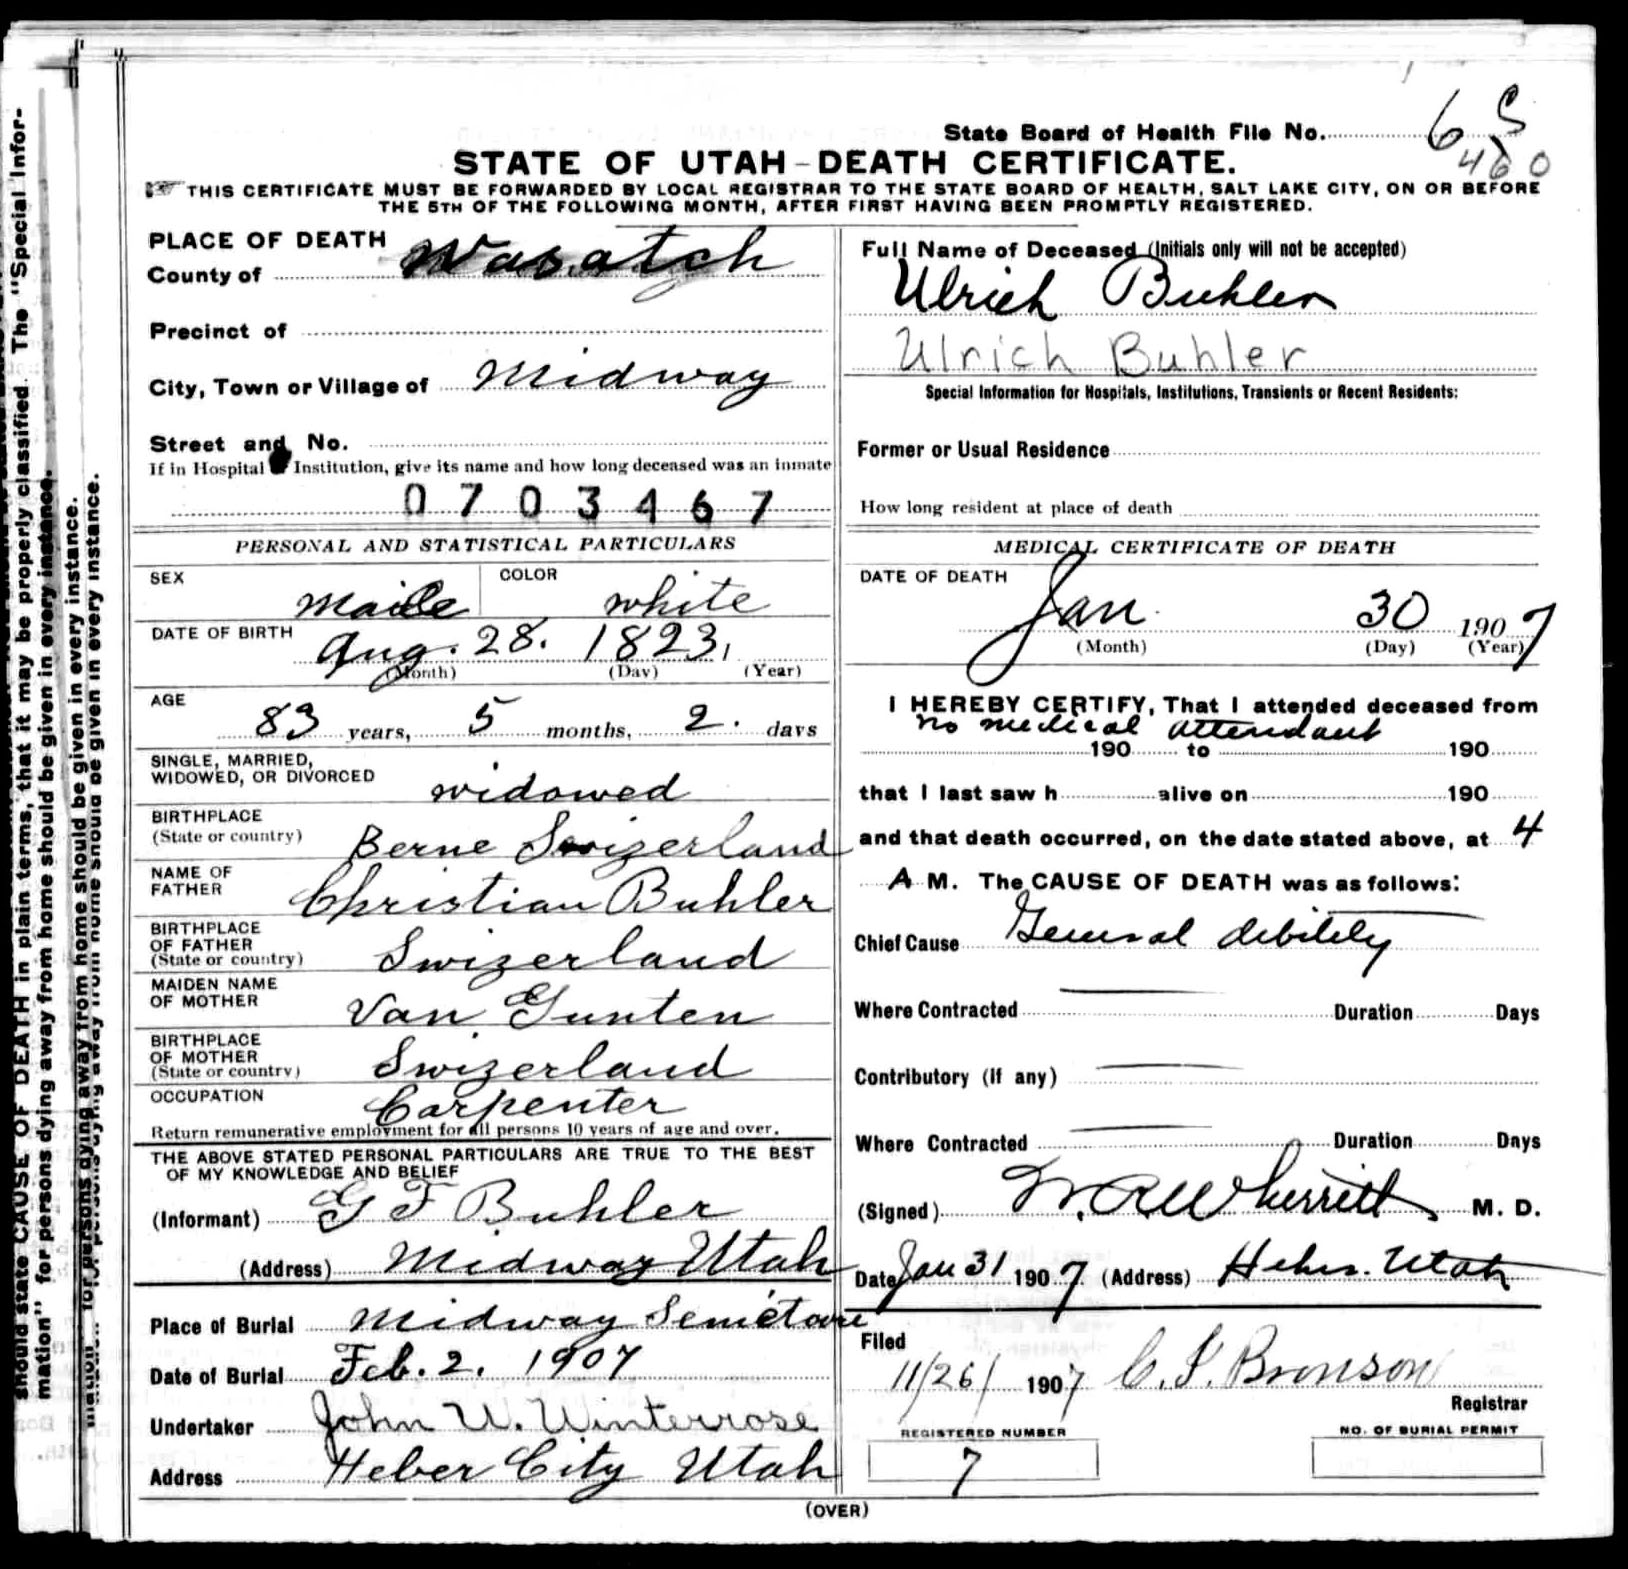 State Board of Health File No. 6 S
460
STATE OF UTAH-DEATH CERTIFICATE.
THIS CERTIFICATE MUST BE FORWARDED BY LOCAL REGISTRAR TO THE STATE BOARD OF HEALTH, SALT LAKE CITY, ON OR BEFORE
THE 5TH OF THE FOLLOWING MONTH, AFTER FIRST HAVING BEEN PROMPTLY REGISTERED.
PLACE OF DEATH
County of Wasatch
Precinct of
City, Town or Village of Midway
Street and No.
If in Hospital Institution, give its name and how long deceased was an inmate
0703467
PERSONAL AND STATISTICAL PARTICULARS
SEX Male COLOR white
DATE OF BIRTH Aug. 28. 1823,
(Month) (Day) (Year)
AGE
83 years, 5 months, 2. days
SINGLE, MARRIED,
WIDOWED, OR DIVORCED widowed
BIRTHPLACE
(State or country) Berne Swizerland
NAME OF
FATHER Christian Buhler
BIRTHPLACE
OF FATHER
(State or country) Swizerland
MAIDEN NAME
OF MOTHER Van Gunten
BIRTHPLACE
OF MOTHER
(State or country) Swizerland
OCCUPATION Carpenter
Return remunerative employment for all persons 10 years of age and over.
THE ABOVE STATED PERSONAL PARTICULARS ARE TRUE TO THE BEST
OF MY KNOWLEDGE AND BELIEF
(Informant) G F Buhler
(Address) Midway Utah
Place of Burial Midway Semetarie
Date of Burial Feb. 2. 1907
Undertaker John W. Winterrose
Address Heber City Utah
Full Name of Deceased (Initials only will not be accepted)
Ulrich Buhler
Ulrich Buhler
Special Information for Hospitals, Institutions, Transients or Recent Residents:
Former or Usual Residence
How long resident at place of death
MEDICAL CERTIFICATE OF DEATH
DATE OF DEATH
Jan 30 1907
(Month) (Day) (Year)
I HEREBY CERTIFY, That I attended deceased from
no medical attendant
190 to 190
that I last saw h alive on 190
and that death occurred, on the date stated above, at 4
A M. The CAUSE OF DEATH was as follows:
Chief Cause General debility
Where Contracted Duration Days
Contributory (if any)
Where Contracted Duration Days
(Signed) W. R Wherritt M. D.
Date Jan 31 1907 (Address) Heber. Utah
Filed
11/26/ 1907 C. S. Bronson
Registrar
REGISTERED NUMBER
7
NO. OF BURIAL PERMIT
(OVER)
should state CAUSE OF DEATH in plain terms, that it may be properly classified. The "Special Infor-
mation" for persons dying away from home should be given in every instance.
for persons dying away from home should be given in every instance.